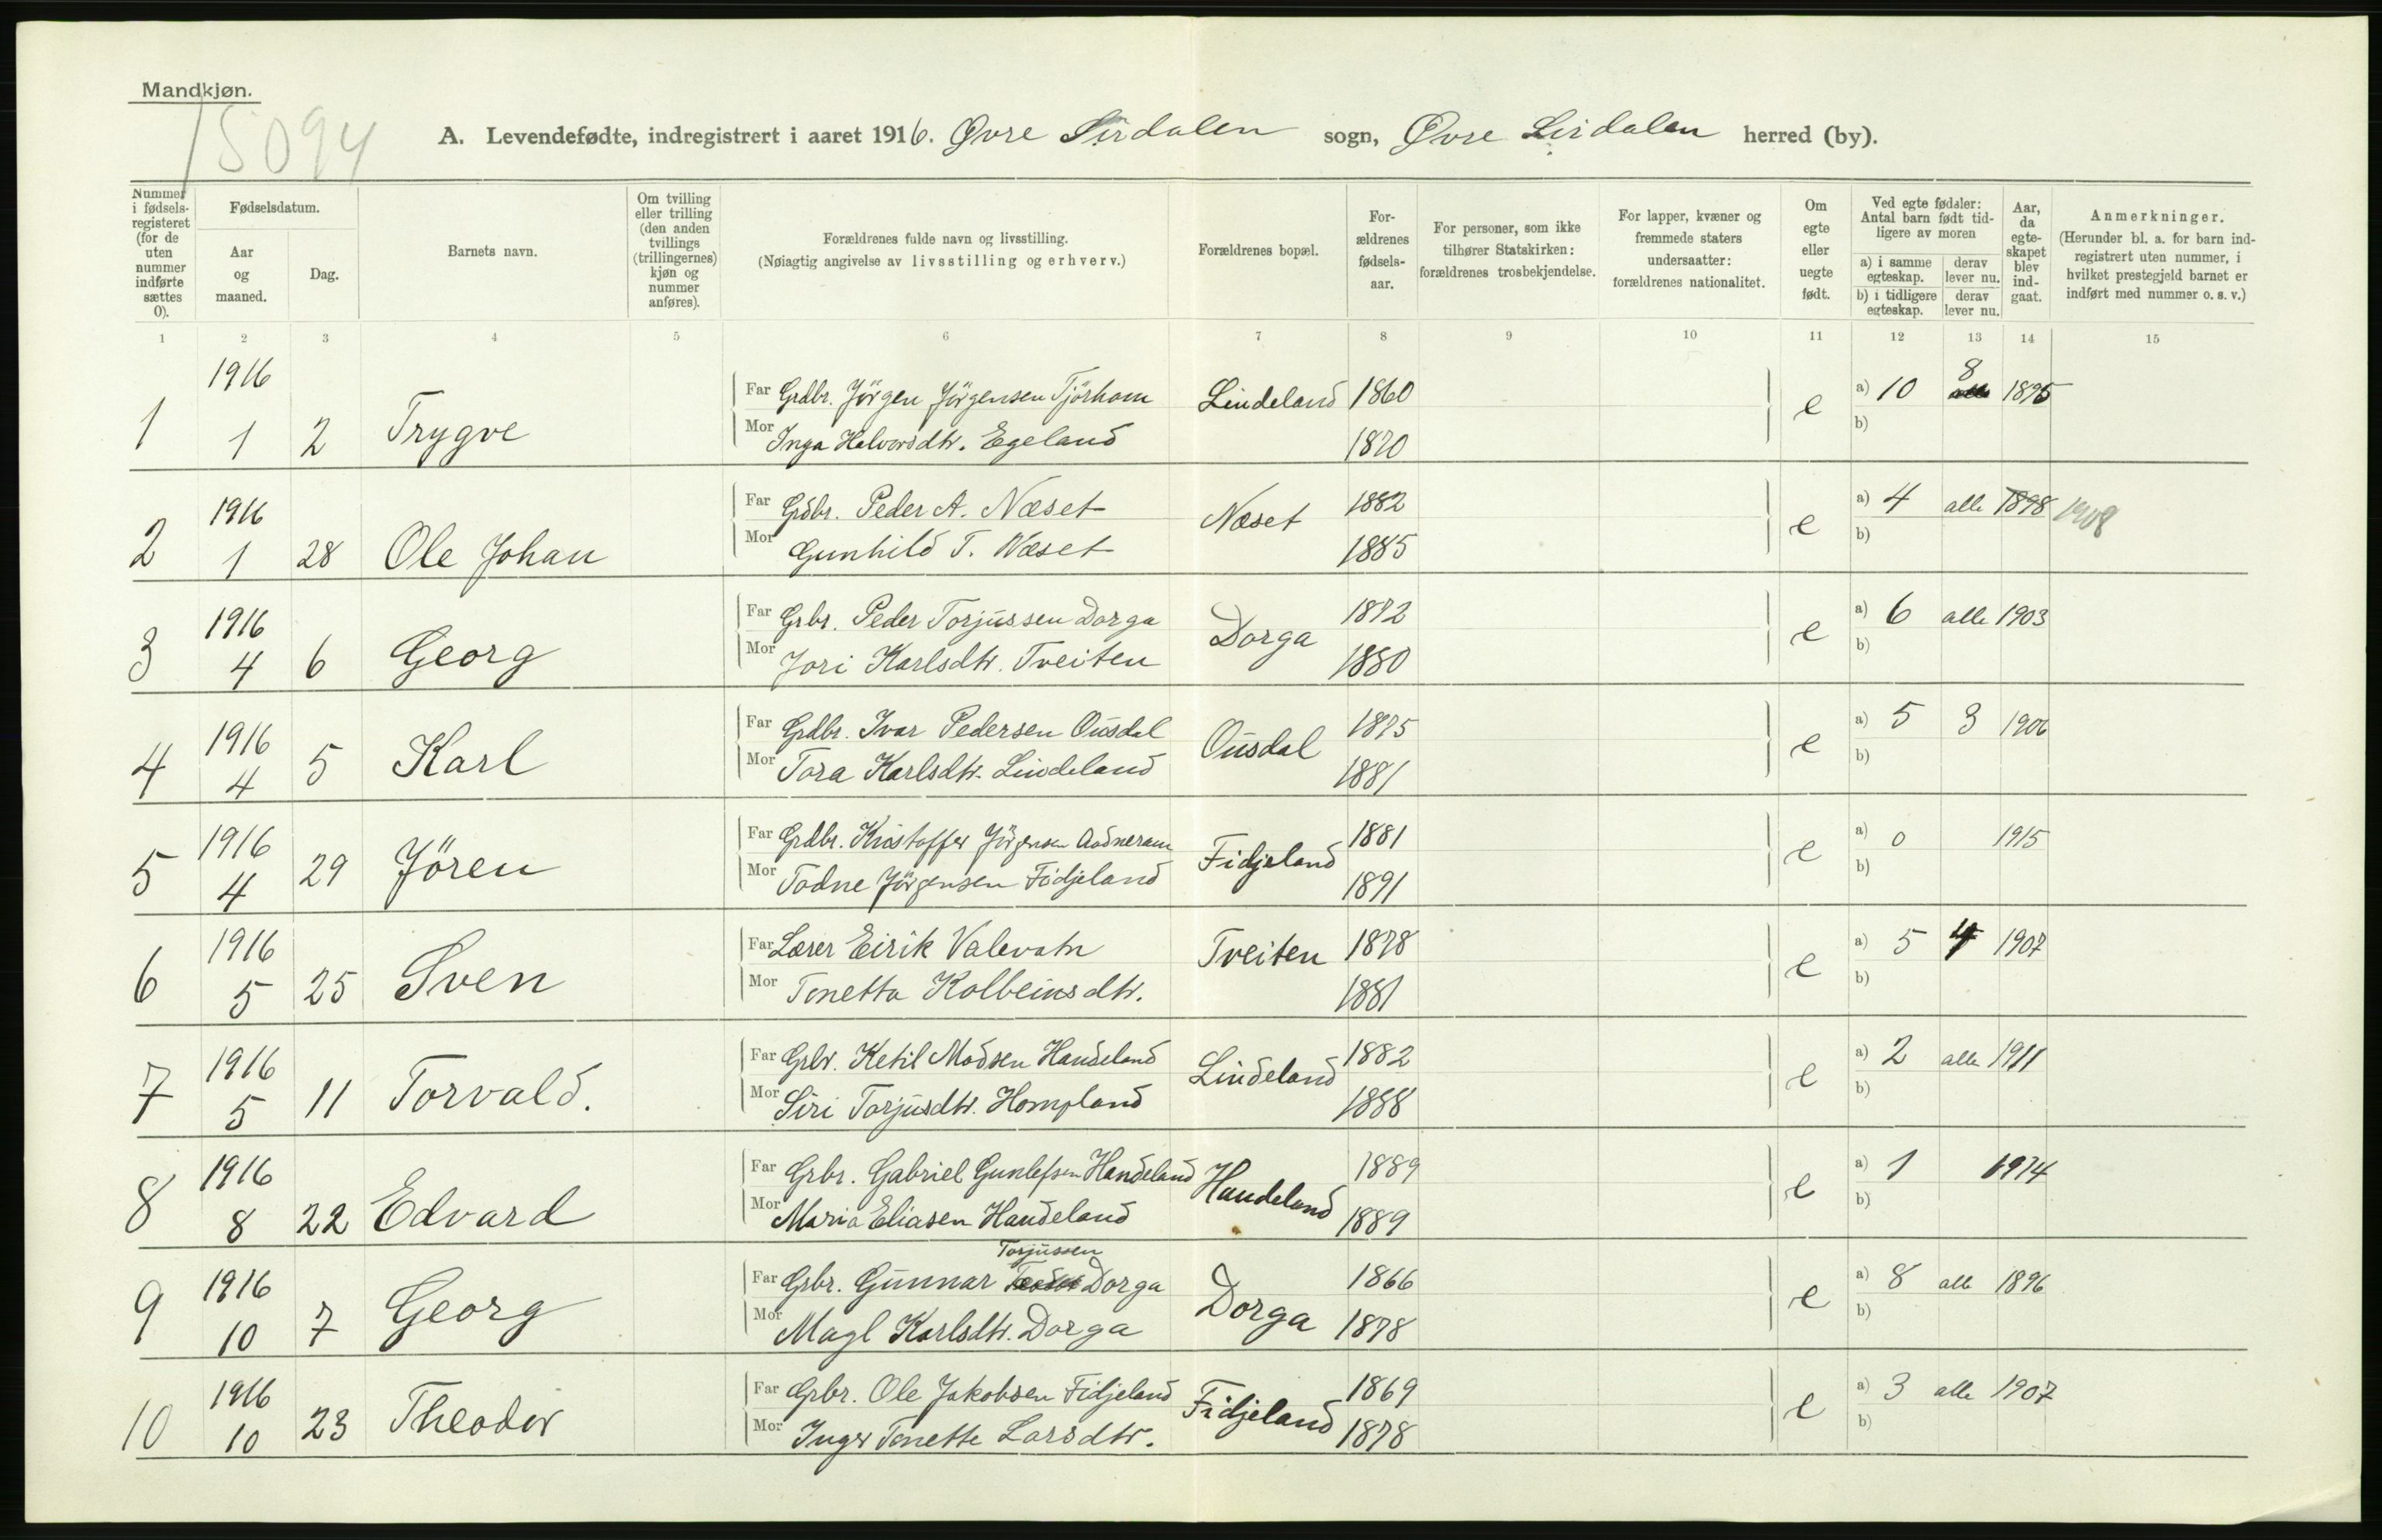 Mandkjøn.
15094
A. Levendefødte, indregistrert i aaret 1916. Øvre Sirdalen sogn, Øvre Sirdalen herred (by).
Nummer i fødselsregisteret (for de uten nummer indførte sættes 0).
Fødselsdatum.
Aar og maaned.
Dag.
Barnets navn.
Om tvilling eller trilling (den anden tvillings (trillingernes) kjøn og nummer anføres).
Forældrenes fulde navn og livsstilling.
(Nøiagtig angivelse av livsstilling og erhverv.)
Forældrenes bopæl.
Forældrenes fødselsaar.
For personer, som ikke tilhører Statskirken: forældrenes trosbekjendelse.
For lapper, kvæner og fremmede staters undersaatter: forældrenes nationalitet.
Om egte eller uegte født.
Ved egte fødsler: Antal barn født tidligere av moren
a) i samme egteskap. derav lever nu.
b) i tidligere egteskap. derav lever nu.
Aar, da egteskapet blev indgaat.
Anmerkninger.
(Herunder bl. a. for barn indregistrert uten nummer, i hvilket prestegjeld barnet er indført med nummer o. s. v.)
1 2 3 4 5 6 7 8 9 10 11 12 13 14 15
1916 Far Grdbr. Jörgen Jörgensen Tjörhom Lindeland 1860 e a) 10 8 1895
1 1 2 Trygve Mor Inga Halvorsdtr. Egeland 1870 b)
1916 Far Gdbr. Peder A. Næset Næset 1882 e a) 4 alle 1898 1908
2 1 28 Ole Johan Mor Gunhild T. Næset 1885 b)
1916 Far Grbr. Peder Torjussen Dorga Dorga 1872 e a) 6 alle 1903
3 4 6 Georg Mor Jori Karlsdtr. Tveiten 1880 b)
1916 Far Grdbr. Ivar Pedersen Ousdal Ousdal 1875 e a) 5 3 1906
4 4 5 Karl Mor Tora Karlsdtr. Lindeland 1881 b)
1916 Far Grdbr. Kristoffer Jörgensen Aadneram Fidjeland 1881 e a) 0 1915
5 4 29 Jören Mor Todne Jörgensen Fidjeland 1891 b)
1916 Far Lærer Eirik Valevatn Tveiten 1878 e a) 5 4 1907
6 5 25 Sven Mor Tonetta Kolbeinsdtr. 1881 b)
1916 Far Grbr. Ketil Madsen Haudeland Lindeland 1882 e a) 2 alle 1911
7 5 11 Torvald. Mor Siri Torjusdtr. Hompland 1888 b)
1916 Far Grbr. Gabriel Gunlefsen Haudeland Haudeland 1889 e a) 1 1914
8 8 22 Edvard Mor Maria Eliasen Haudeland 1889 b)
Torjussen
1916 Far Grbr. Gunnar Dorga Dorga 1866 e a) 8 alle 1896
9 10 7 Georg Mor Magl Karlsdtr. Dorga 1878 b)
1916 Far Grbr. Ole Jakobsen Fidjeland Fidjeland 1869 e a) 3 alle 1907
10 10 23 Theodor Mor Inger Tonette Larsdtr. 1878 b)